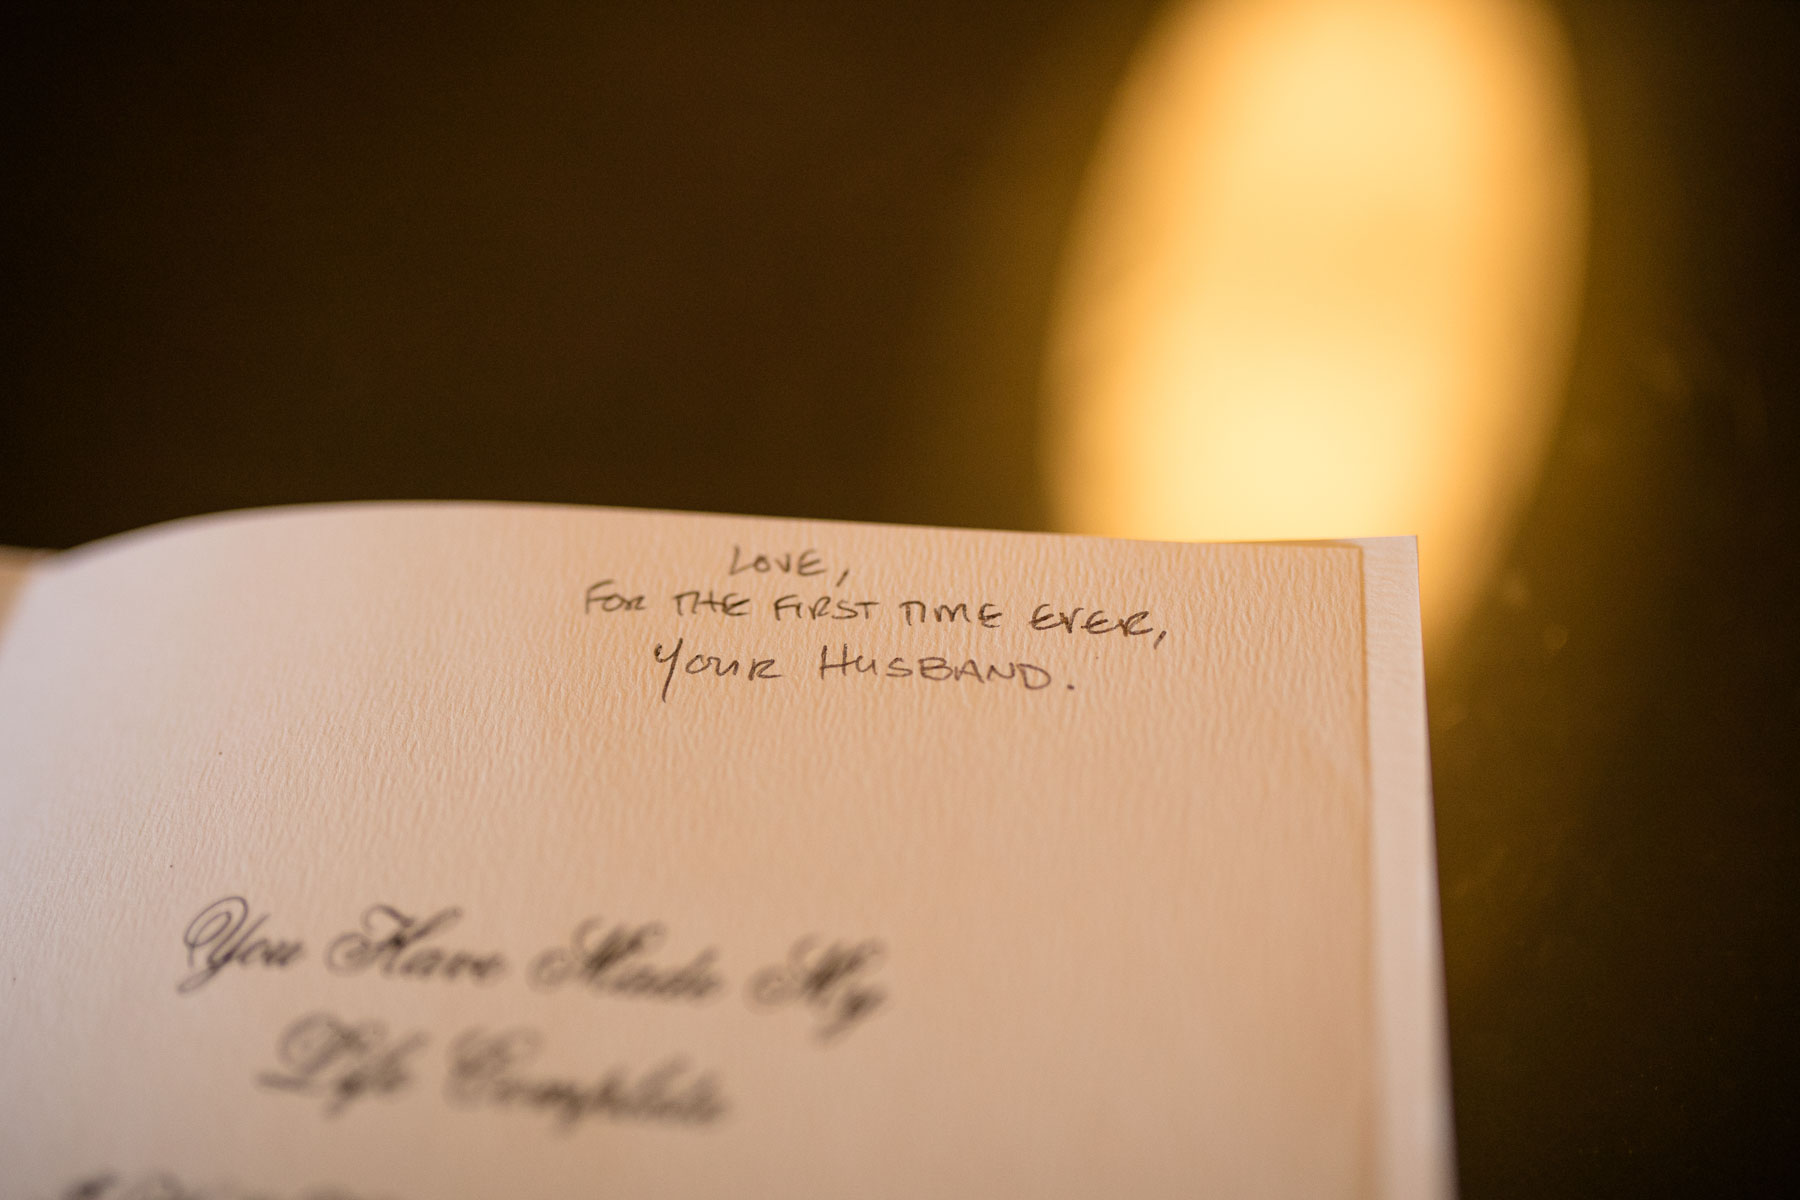 LOVE,
FOR THE FIRST TIME EVER,
YOUR HUSBAND.
You Have Made My
Life Complete